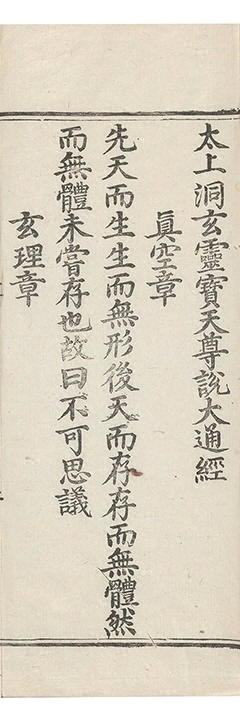 太上洞玄靈寶天尊說大通經
眞空章
先天而生生而無形後天而存存而無體然
而無體未嘗存也故曰不可思議
玄理章